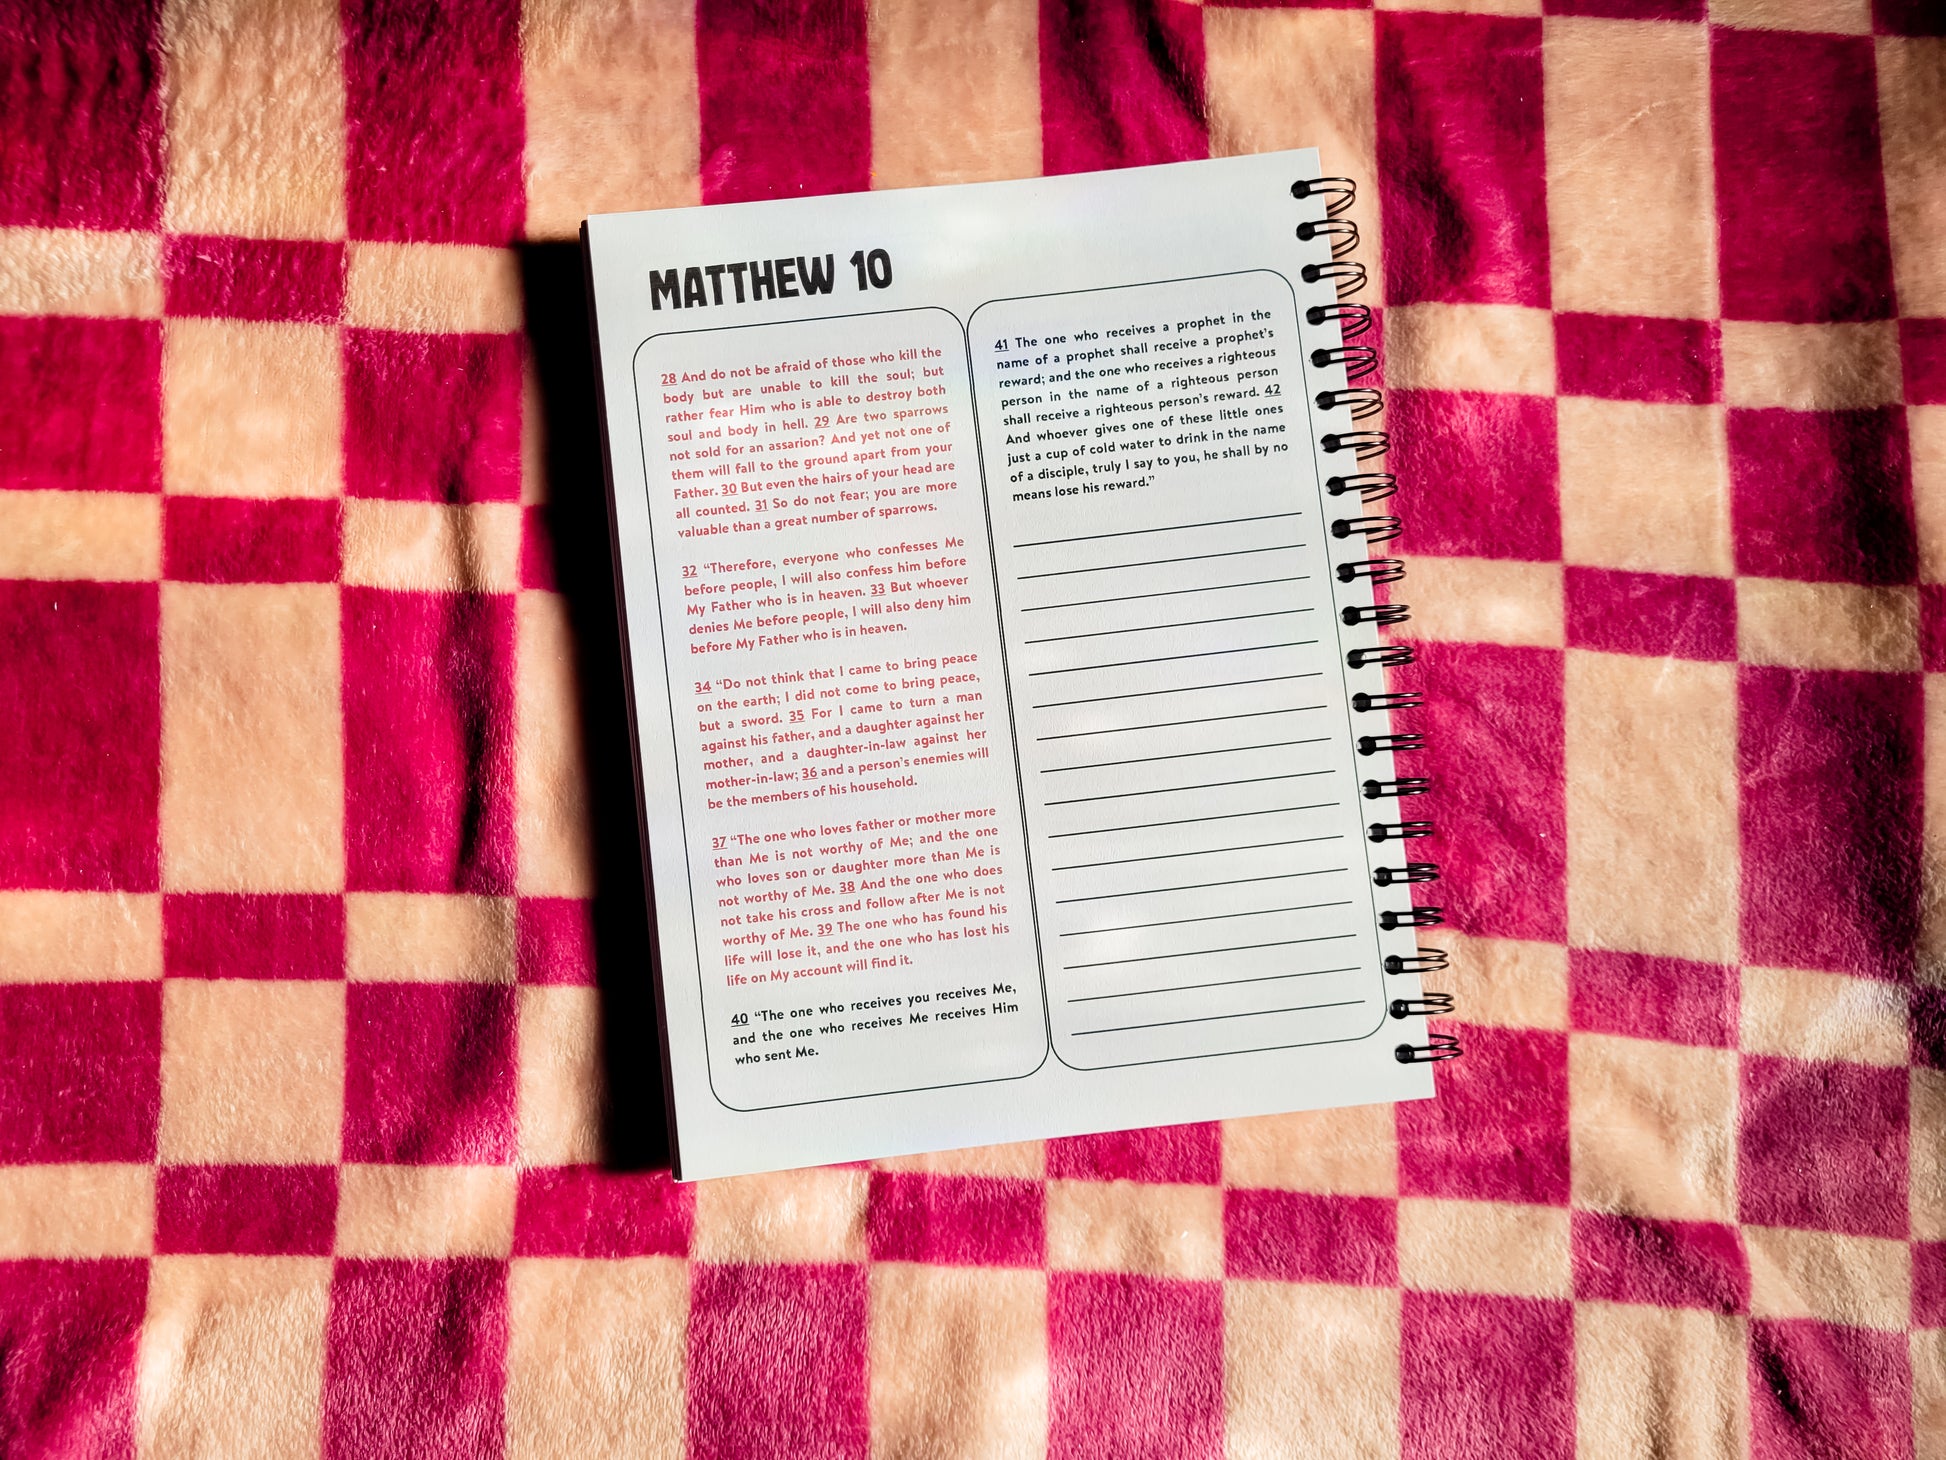 MATTHEW 10
28 And do not be afraid of those who kill the
body but are unable to kill the soul; but
rather fear Him who is able to destroy both
soul and body in hell. 29 Are two sparrows
not sold for an assarion? And yet not one of
them will fall to the ground apart from your
Father. 30 But even the hairs of your head are
all counted. 31 So do not fear; you are more
valuable than a great number of sparrows.
32 “Therefore, everyone who confesses Me
before people, I will also confess him before
My Father who is in heaven. 33 But whoever
denies Me before people, I will also deny him
before My Father who is in heaven.
34 “Do not think that I came to bring peace
on the earth; I did not come to bring peace,
but a sword. 35 For I came to turn a man
against his father, and a daughter against her
mother, and a daughter-in-law against her
mother-in-law; 36 and a person’s enemies will
be the members of his household.
37 “The one who loves father or mother more
than Me is not worthy of Me; and the one
who loves son or daughter more than Me is
not worthy of Me. 38 And the one who does
not take his cross and follow after Me is not
worthy of Me. 39 The one who has found his
life will lose it, and the one who has lost his
life on My account will find it.
40 “The one who receives you receives Me,
and the one who receives Me receives Him
who sent Me.
41 The one who receives a prophet in the
name of a prophet shall receive a prophet’s
reward; and the one who receives a righteous
person in the name of a righteous person
shall receive a righteous person’s reward. 42
And whoever gives one of these little ones
just a cup of cold water to drink in the name
of a disciple, truly I say to you, he shall by no
means lose his reward.”